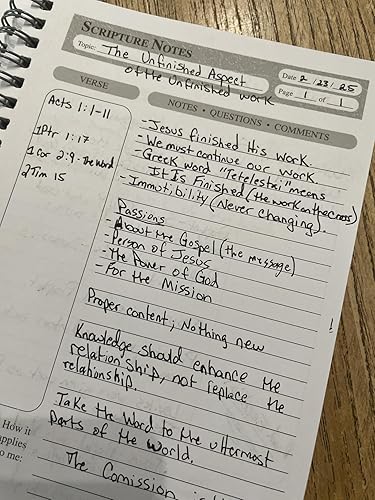 SCRIPTURE NOTES
Topic: The Unfinished Aspect
of the Unfinished work
Date 2/23/25
Page 1 of 1
VERSE
NOTES • QUESTIONS • COMMENTS
Acts 1:1-11
1Ptr 1:17
1 Cor 2:9 - the word
2 Tim 15
- Jesus finished His work.
- We must continue our work
- Greek word "Tetelestai" means
It Is Finished (the work on the cross)
- Immutibility (Never Changing).
Passions
- About the Gospel (the message)
- Person of Jesus
- The Power of God
- For the Mission
Proper content; Nothing new
Knowledge should enhance the
relationship, not replace the
relationship.
Take the Word to the uttermost
parts of the world.
The Comission is
How it
applies
to me: